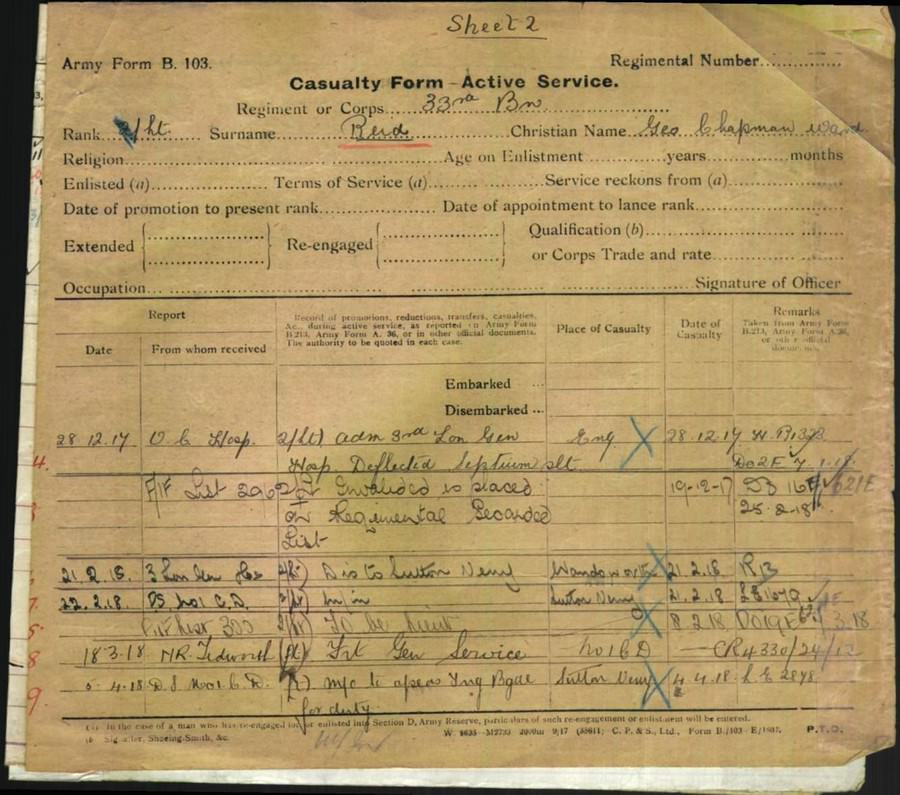 Sheet 2
Army Form B. 103.
Regimental Number
Casualty Form—Active Service.
Regiment or Corps 33rd Bn
Rank 2/Lt. Surname Beid. Christian Name Geo Chapman Ward
Religion Age on Enlistment years months
Enlisted (a) Terms of Service (a) Service reckons from (a)
Date of promotion to present rank Date of appointment to lance rank
Extended Re-engaged Qualification (b)
or Corps Trade and rate
Occupation Signature of Officer
Report
Date From whom received
Record of promotions, reductions, transfers, casualties,
&c., during active service, as reported on Army Form
B.213, Army Form A. 36, or in other official documents.
The authority to be quoted in each case.
Place of Casualty
Date of
Casualty
Remarks
Taken from Army Form
B.213, Army Form A.36,
or other official
documents.
Embarked
Disembarked
28 12.17 O C Hosp. 2/Lt) adm 3rd Lon Gen Eng 28.12.17
4. Hosp. Deflected Septum slt.
List 296 2/Lt Invalided is placed 19-12-17
on Regimental Seconded 25.2.18
List
21.2.18. 3 Lon Gen Hos 2/Lt) Dis to Sutton Veny Wandsworth 21.2.18 R13
7. 22.2.18. DS No1 C.D. 2/Lt) m/in Sutton Veny 21.2.18
5 2/Lt) To be Lieut 8 2.18 3.18
8 18.3.18 HR. Tidworth (Lt) Fit Gen Service No1 CD CR4330/24/12
9 5.4.18 D.S No1 C.D. (Lt) m/o to Trng Bgde Sutton Veny 4.4.18 L.E 2898
for duty.
(a) In the case of a man who has re-engaged for or enlisted into Section D, Army Reserve, particulars of such re-engagement or enlistment will be entered.
(b) Signaller, Shoeing-Smith, &c. Form B./103—E/1607. P.T.O.